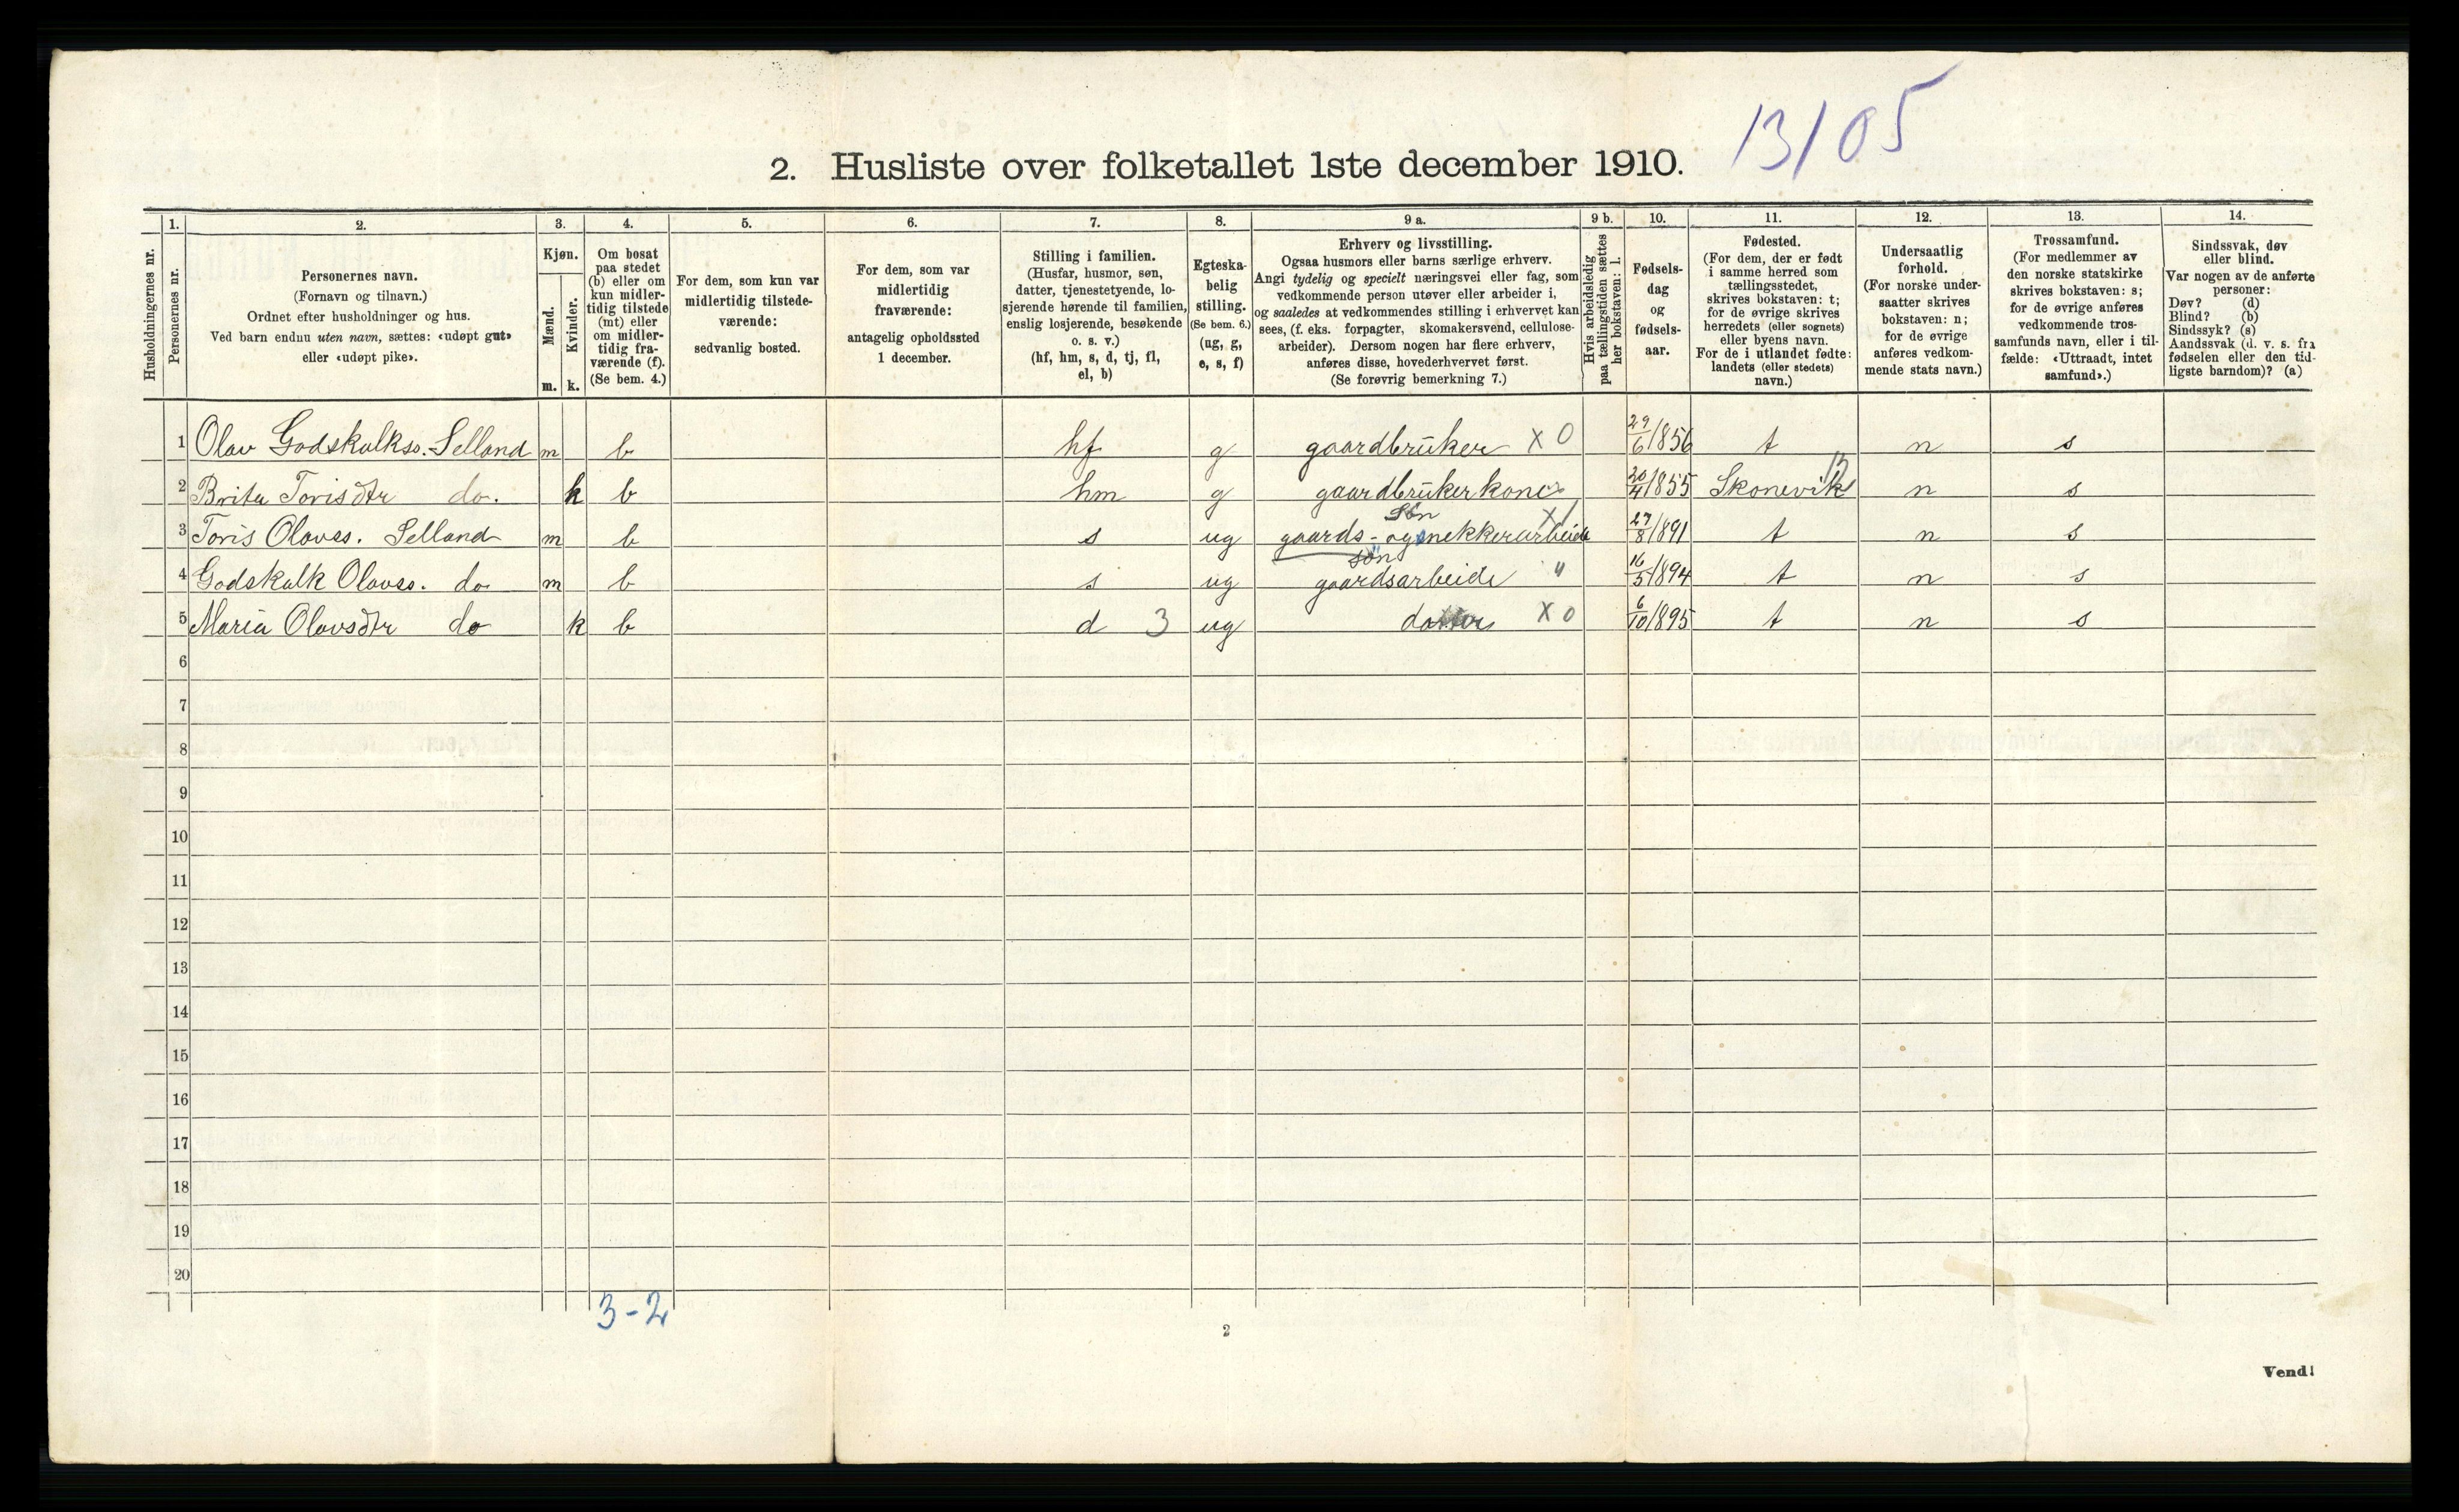 13/05
2. Husliste over folketallet 1ste december 1910.
Husholdningernes nr.
1.
Personernes nr.
2.
Personernes navn.
(Fornavn og tilnavn.)
Ordnet efter husholdninger og hus.
Ved barn endnu uten navn, sættes: «udøpt gut»
eller «udøpt pike».
3.
Kjøn.
Mænd.
Kvinder.
m. k.
4.
Om bosat
paa stedet
(b) eller om
kun midler-
tidig tilstede
(mt) eller
om midler-
tidig fra-
værende (f).
(Se bem. 4.)
5.
For dem, som kun var
midlertidig tilstede-
værende:
sedvanlig bosted.
6.
For dem, som var
midlertidig
fraværende:
antagelig opholdssted
1 december.
7.
Stilling i familien.
(Husfar, husmor, søn,
datter, tjenestetyende, lo-
sjerende hørende til familien,
enslig losjerende, besøkende
o. s. v.)
(hf, hm, s, d, tj, fl,
el, b)
8.
Egteska-
belig
stilling.
(Se bem. 6.)
(ug, g,
e, s, f)
9 a.
Erhverv og livsstilling.
Ogsaa husmors eller barns særlige erhverv.
Angi tydelig og specielt næringsvei eller fag, som
vedkommende person utøver eller arbeider i,
og saaledes at vedkommendes stilling i erhvervet kan
sees, (f. eks. forpagter, skomakersvend, cellulose-
arbeider). Dersom nogen har flere erhverv,
anføres disse, hovederhvervet først.
(Se forøvrig bemerkning 7.)
9 b.
Hvis arbeidsledig
paa tællingstiden sættes
her bokstaven: l.
10.
Fødsels-
dag
og
fødsels-
aar.
11.
Fødested.
(For dem, der er født
i samme herred som
tællingsstedet,
skrives bokstaven: t;
for de øvrige skrives
herredets (eller sognets)
eller byens navn.
For de i utlandet fødte:
landets (eller stedets)
navn.)
12.
Undersaatlig
forhold.
(For norske under-
saatter skrives
bokstaven: n;
for de øvrige
anføres vedkom-
mende stats navn.)
13.
Trossamfund.
(For medlemmer av
den norske statskirke
skrives bokstaven: s;
for de øvrige anføres
vedkommende tros-
samfunds navn, eller i til-
fælde: «Uttraadt, intet
samfund».)
14.
Sindssvak, døv
eller blind.
Var nogen av de anførte
personer:
Døv? (d)
Blind? (b)
Sindssyk? (s)
Aandssvak (d. v. s. fra
fødselen eller den tid-
ligste barndom)? (a)
1 Olav Godskalkss. Selland m b hf g gaardbruker X 0 29/6 1856 t n s
2 Brita Torisdtr do. k b hm g gaardbrukerkone 20/4 1855 Skonevik n s
3 Toris Olavss. Selland m b s ug gaards- og snekkerarbeide søn X 1 27/8 1891 t n s
4 Godskalk Olavss. do m b s ug gaardsarbeide søn " 16/5 1894 t n s
5 Maria Olavsdtr do k b d 3 ug datter X 0 6/10 1895 t n s
6
7
8
9
10
11
12
13
14
15
16
17
18
19
20
3-2
2
Vend!